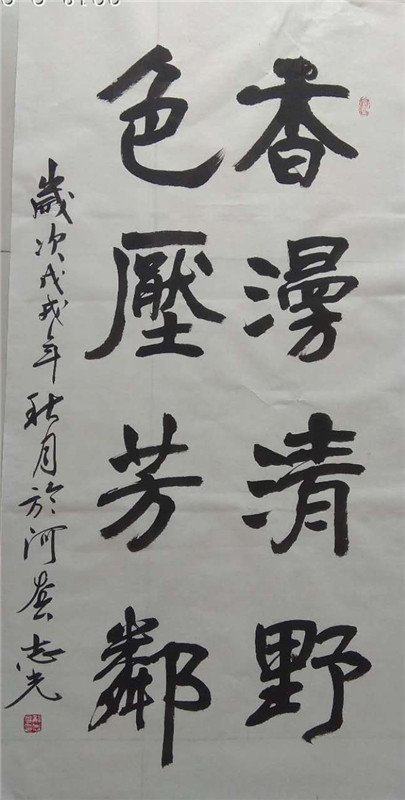 香漫清野
色壓芳鄰
歲次戊戌年秋月於河套志光